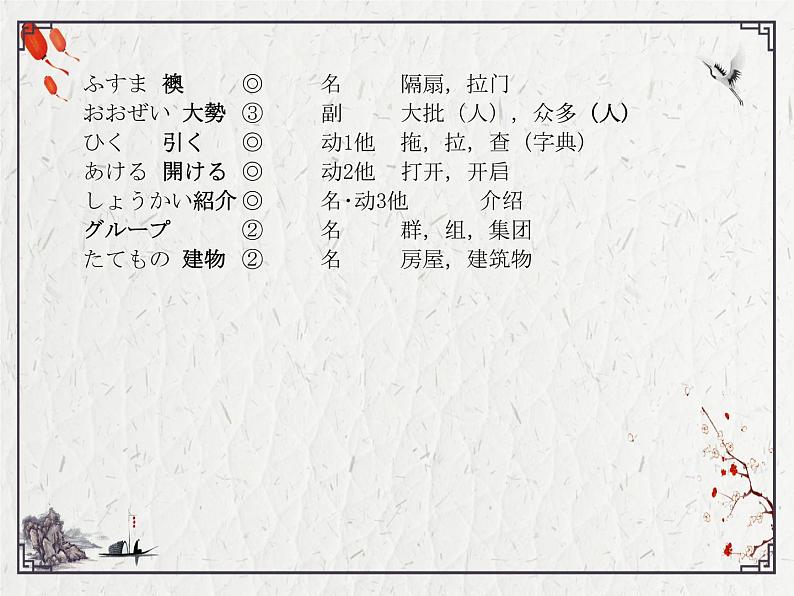 ふすま 襖 ◎ 名 隔扇，拉门
おおぜい 大勢 ③ 副 大批（人），众多（人）
ひく 引く ◎ 动1他 拖，拉，查（字典）
あける 開ける ◎ 动2他 打开，开启
しょうかい紹介 ◎ 名·动3他 介绍
グループ ② 名 群，组，集团
たてもの 建物 ② 名 房屋，建筑物